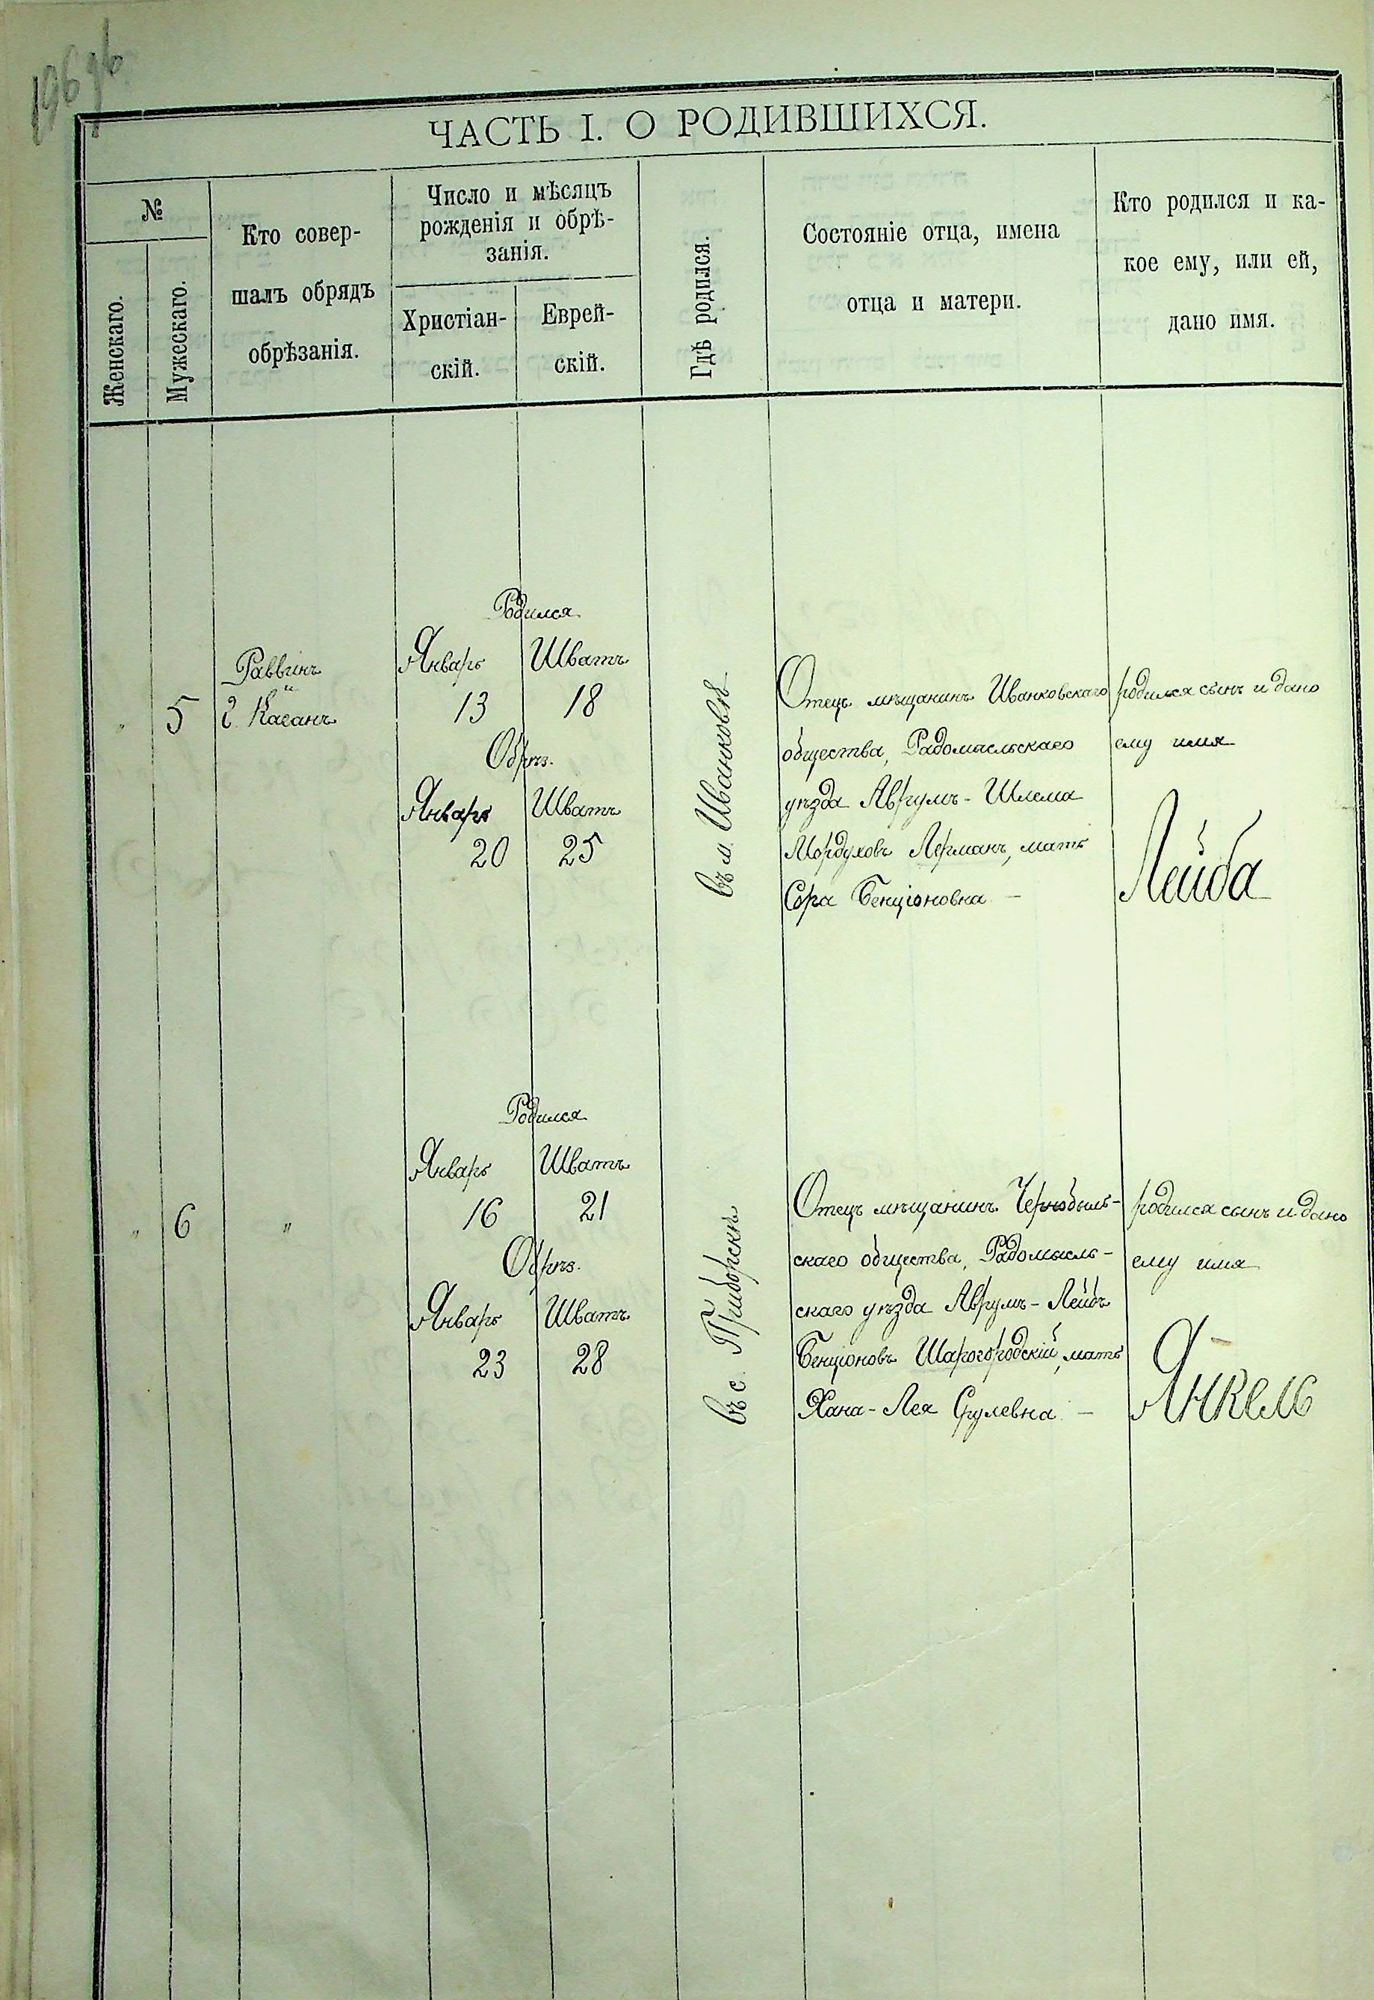 196 об
ЧАСТЬ I. О РОДИВШИХСЯ.
№
Женскаго.
Мужескаго.
Кто совер-
шалъ обрядъ
обрѣзанія.
Число и мѣсяцъ
рожденія и обрѣ-
занія.
Христіан-
скій.
Еврей-
скій.
Гдѣ родился.
Состояніе отца, имена
отца и матери.
Кто родился и ка-
кое ему, или ей,
дано имя.
"
5
Раввинъ
Каганъ
Родился
Январь Шватъ
13 18
Обрѣз.
Январь Шватъ
20 25
въ м. Иванковѣ
Отецъ мѣщанинъ Иванковскаго
общества, Радомысльскаго
уѣзда Аврумъ-Шлема
Мордуховъ Лерманъ, мать
Сура Бенціоновна —
родился сынъ и дано
ему имя
Лейба
"
6
"
Родился
Январь Шватъ
16 21
Обрѣз.
Январь Шватъ
23 28
въ с. Приборскѣ
Отецъ мѣщанинъ Чернобыль-
скаго общества, Радомысль-
скаго уѣзда Аврумъ-Лейбъ
Бенціоновъ Шарогородскій, мать
Хана-Лея Срулевна —
родился сынъ и дано
ему имя
Янкель